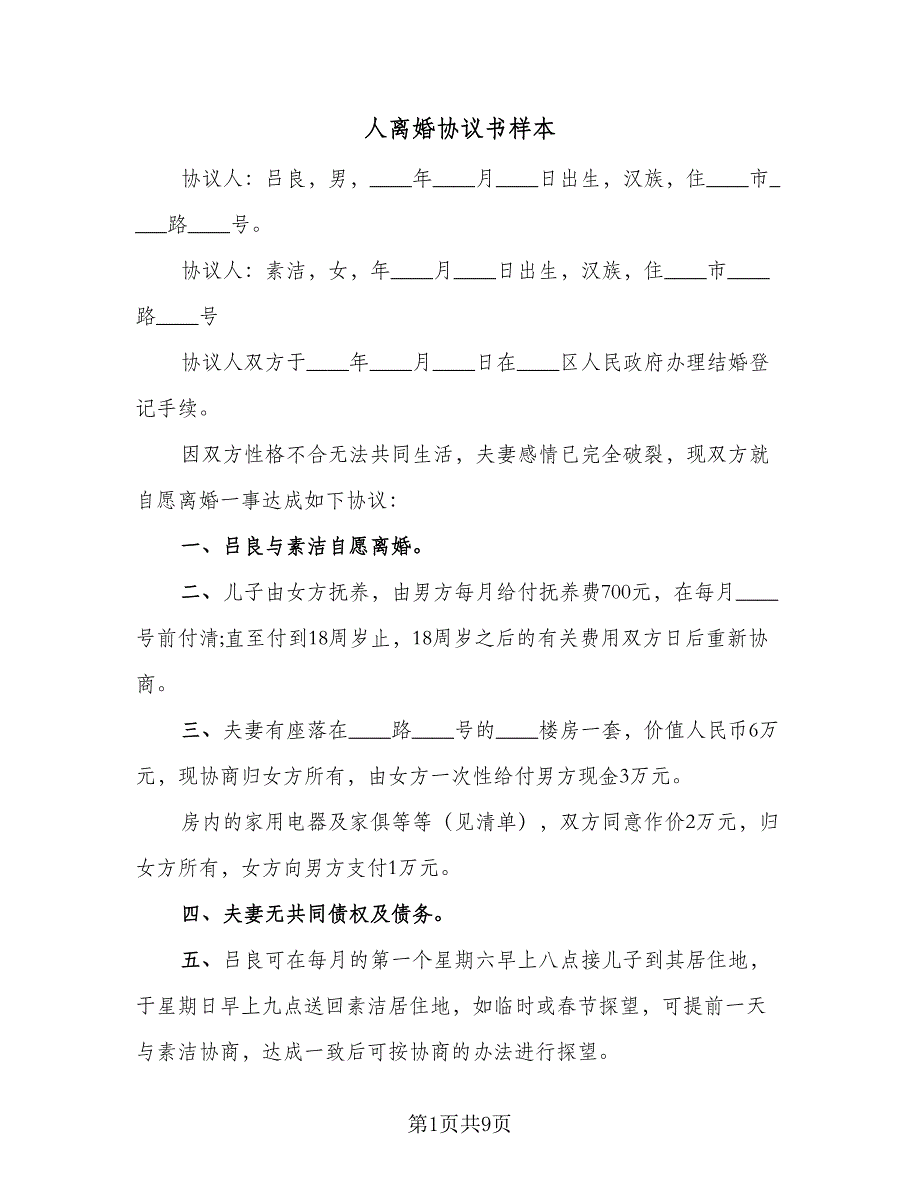 人离婚协议书样本
协议人：吕良，男，____年____月____日出生，汉族，住____市_
___路____号。
协议人：素洁，女，年____月____日出生，汉族，住____市____
路____号
协议人双方于____年____月____日在____区人民政府办理结婚登
记手续。
因双方性格不合无法共同生活，夫妻感情已完全破裂，现双方就
自愿离婚一事达成如下协议：
一、吕良与素洁自愿离婚。
二、儿子由女方抚养，由男方每月给付抚养费700元，在每月____
号前付清;直至付到18周岁止，18周岁之后的有关费用双方日后重新协
商。
三、夫妻有座落在____路____号的____楼房一套，价值人民币6万
元，现协商归女方所有，由女方一次性给付男方现金3万元。
房内的家用电器及家俱等等（见清单），双方同意作价2万元，归
女方所有，女方向男方支付1万元。
四、夫妻无共同债权及债务。
五、吕良可在每月的第一个星期六早上八点接儿子到其居住地，
于星期日早上九点送回素洁居住地，如临时或春节探望，可提前一天
与素洁协商，达成一致后可按协商的办法进行探望。
第1页共9页